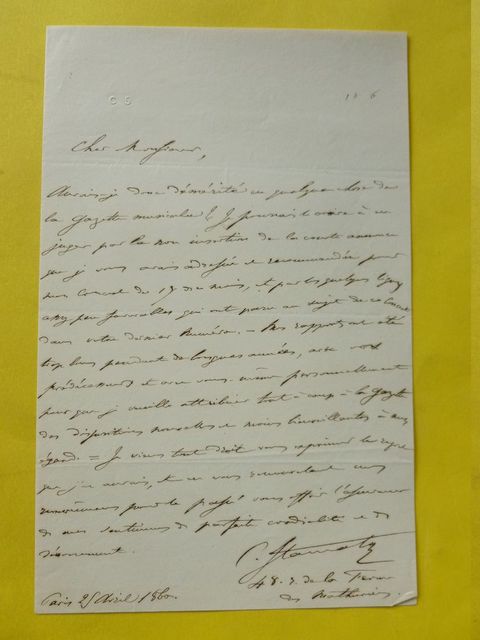 C S
Cher Monsieur,
Aurais-je donc démérité en quelque chose de
la Gazette musicale? Je pourrais le croire à en
juger par la non insertion de la courte annonce
que je vous avais adressée et recommandée pour
mon Concert du 19 de ce mois, et par les quelques lignes
assez peu favorables qui ont paru au sujet de ce Concert
dans votre dernier Numéro. — Mes rapports ont été
trop bons pendant de longues années, avec vos
prédécesseurs et avec vous même personnellement
pour que je veuille attribuer tout-à-coup à la Gazette
des dispositions nouvelles et moins bienveillantes à mon
égard. = Je viens tout droit vous exprimer le regret
que j'en aurais, et en vous renouvelant mes
remerciements pour le passé vous offrir l'assurance
de mes sentiments de parfaite cordialité et de
dévouement.
C. Stamaty
48. r. de la Ferme
des Mathurins
Paris 25 Avril 1860.